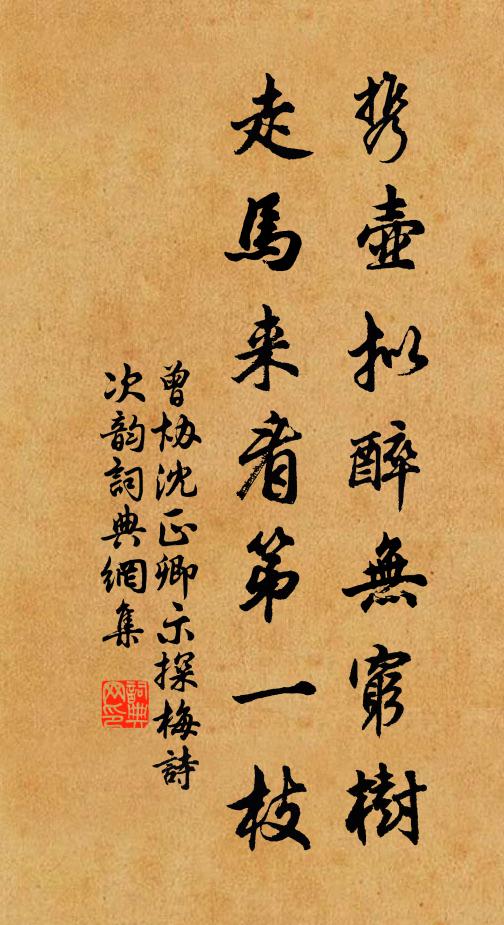 携壺拟醉無窮樹
走馬来看第一枝
曾協沈正卿示探梅詩
次韵詞典網集
詞典网印